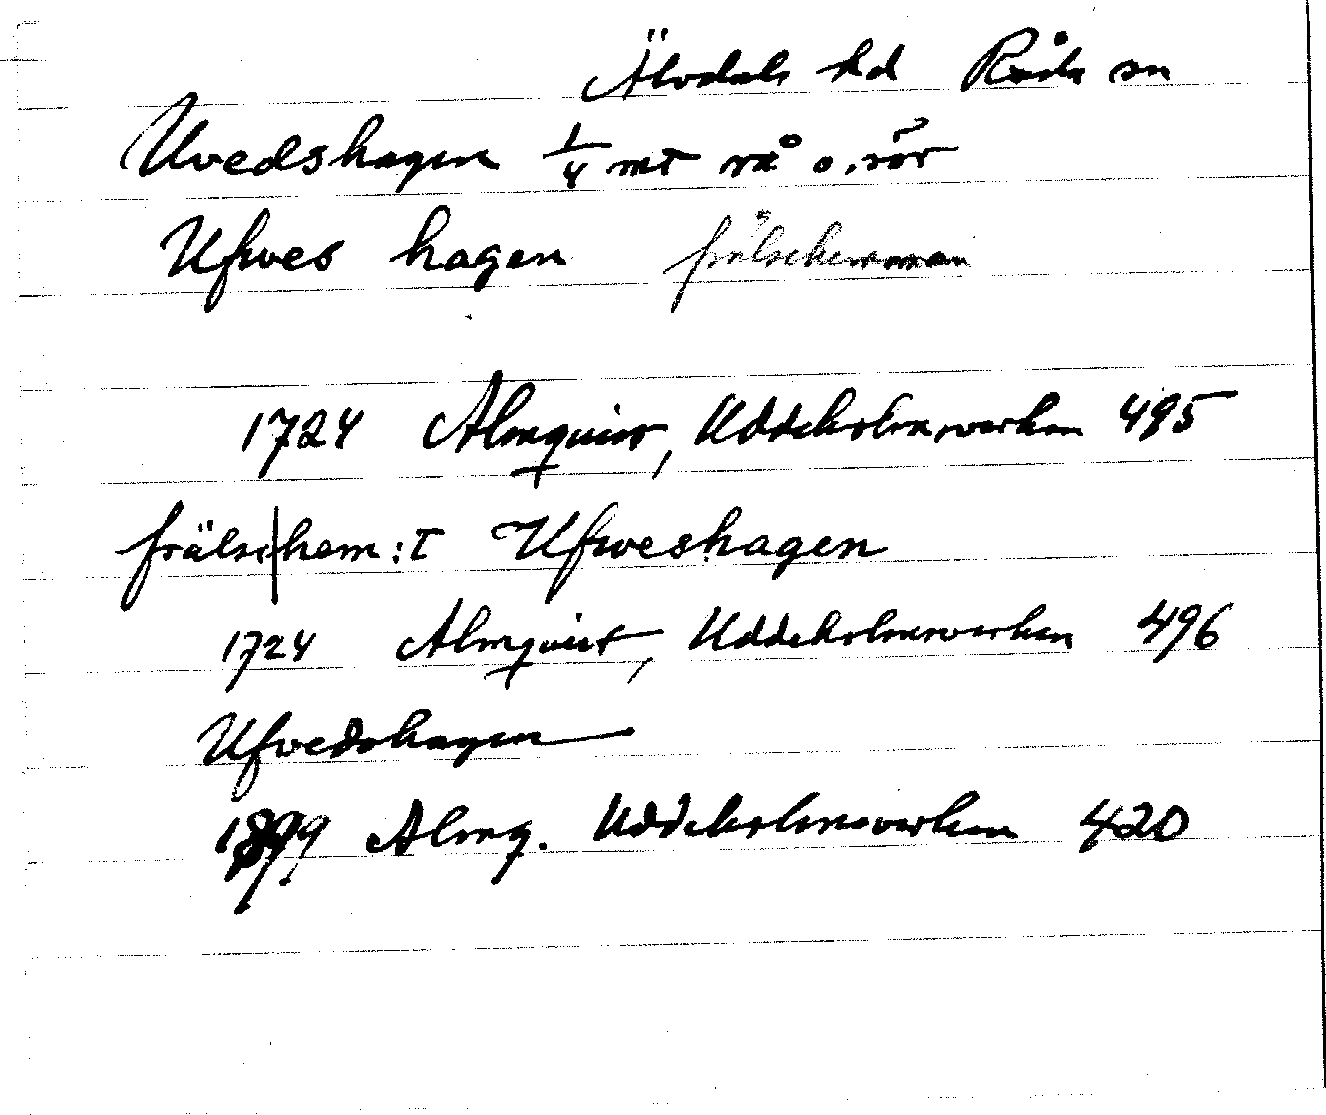 Älvdals hd Råda sn
Uvedshagen 1/4 mt rå o. rör
Ufwes hagen frälsehemman
1724 Almquist, Uddeholmsverken 495
frälse|hem:t Ufweshagen
1724 Almquist, Uddeholmsverken 496
Ufvedshagen
1899 Almq. Uddeholmsverken 420